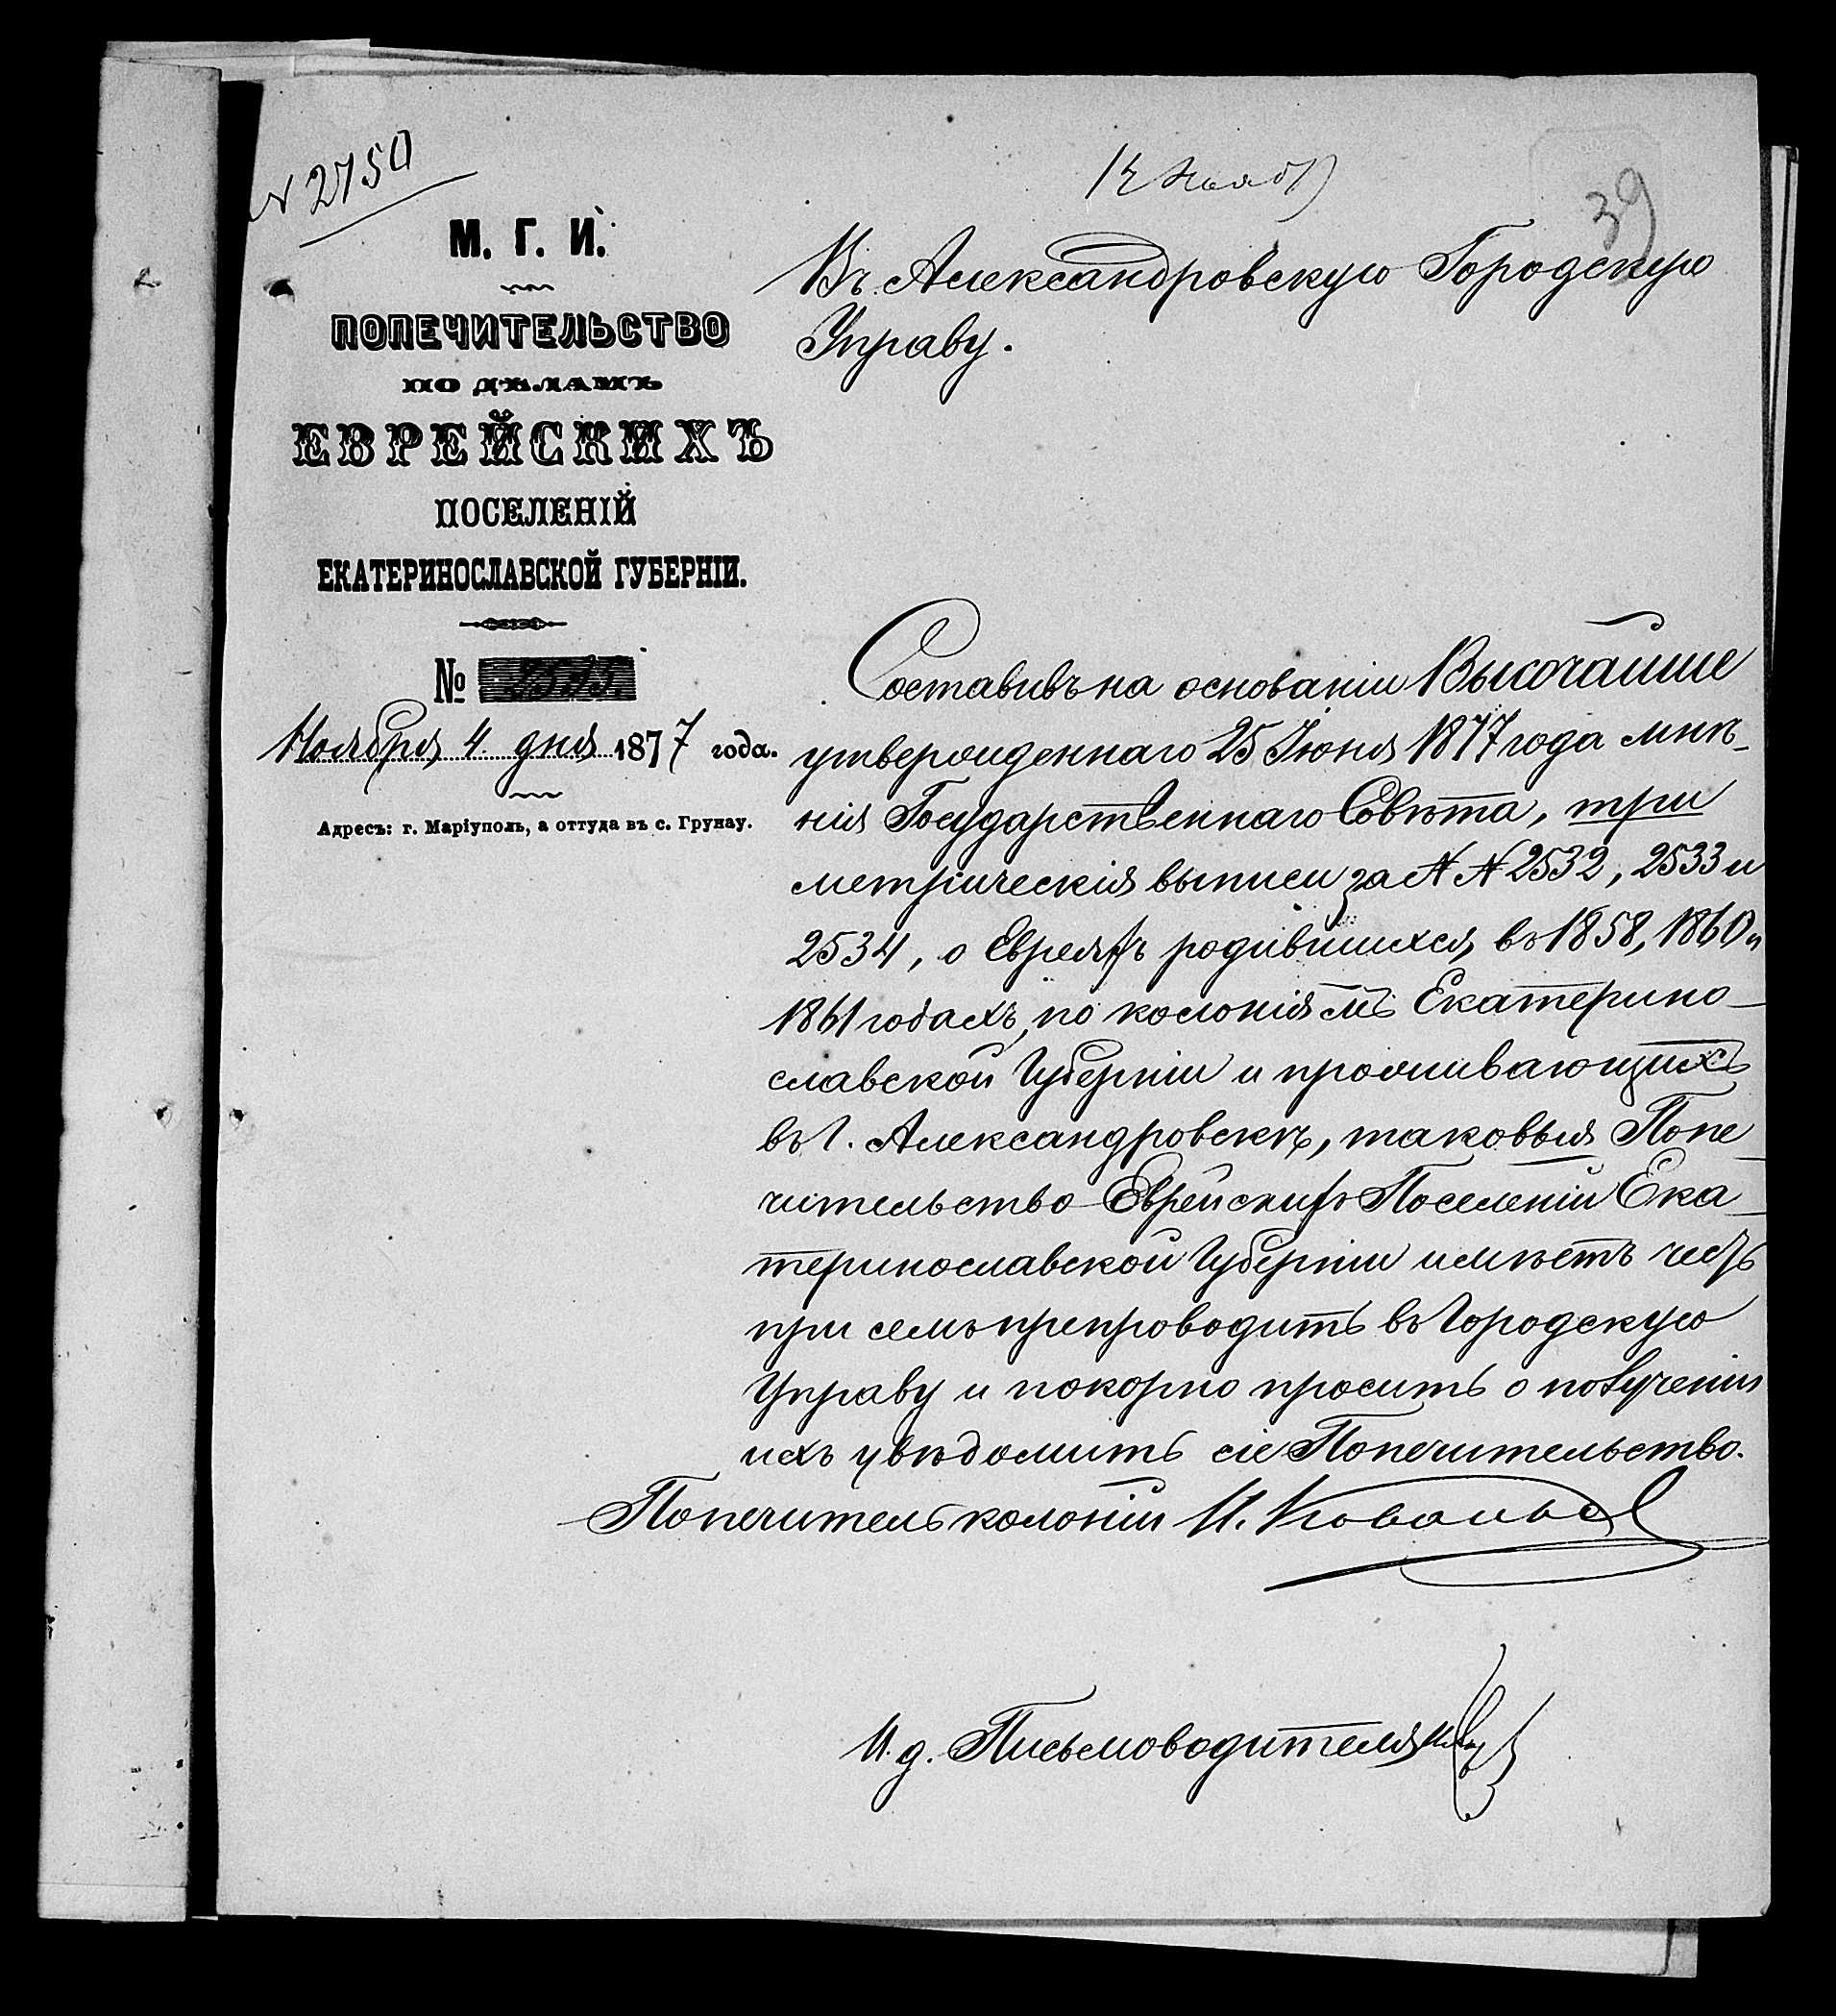 № 2750
12 Нояб.
39
М. Г. И.
ПОПЕЧИТЕЛЬСТВО
ПО ДѢЛАМЪ
ЕВРЕЙСКИХЪ
ПОСЕЛЕНІЙ
ЕКАТЕРИНОСЛАВСКОЙ ГУБЕРНІИ.
№
Ноября 4 дня 1877 года.
Адресъ: г. Маріуполь, а оттуда въ с. Грунау.
Въ Александровскую Городскую
Управу.
Составивъ на основаніи Высочайше
утвержденнаго 25 Іюня 1877 года мнѣ-
нія Государственнаго Совѣта, три
метрическія выписи за №№ 2532, 2533 и
2534, о Евреяхъ родившихся, въ 1858, 1860 и
1861 годахъ, по колоніямъ Екатерино-
славской Губерніи и проживающихъ
въ г. Александровскѣ, таковыя Попе-
чительство Еврейскихъ Поселеній Ека-
теринославской Губерніи имѣетъ честь
при семъ препроводить въ Городскую
Управу и покорно проситъ о полученіи
ихъ увѣдомить сіе Попечительство.
Попечитель колоній И.
И. д. Письмоводителя